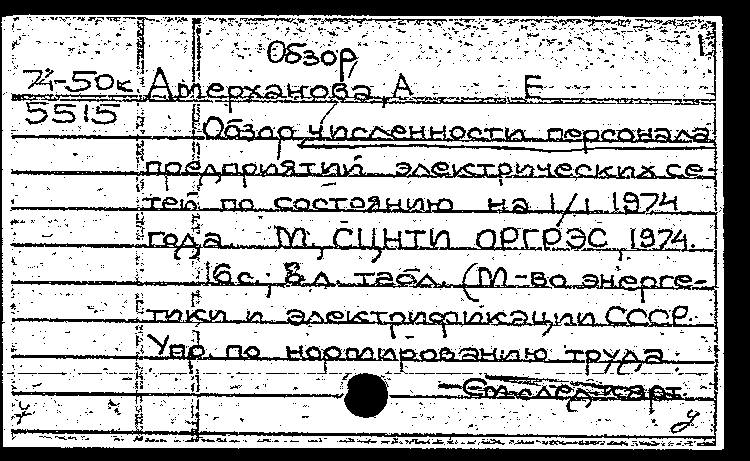 Обзор
74-50к Амерханова, А Е
5515
Обзор численности персонала
предприятий электрических се-
тей по состоянию на 1/1 1974
года. М., СЦНТИ ОРГРЭС, 1974.
16с.; 8 л. табл. (М-во энерге-
тики и электрификации СССР.
Упр. по нормированию труда.
См след. карт.